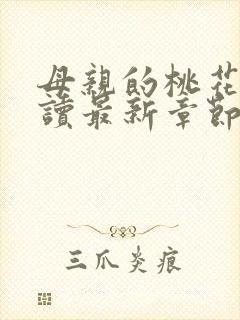 母親的桃花
讀最新章節
三爪炎痕